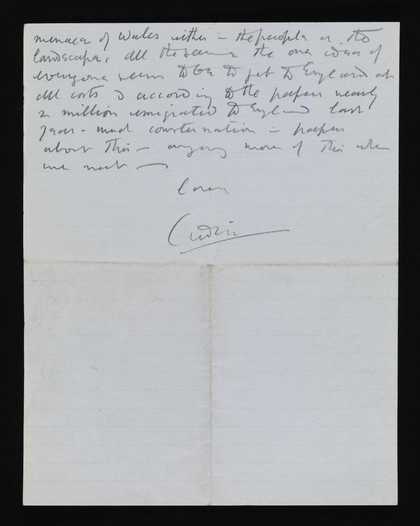 menace of Wales either – the people or the
landscape. All the same the one idea of
everyone seems to be to get to England at
all costs & according to the papers nearly
½ million emigrated to England last
year – much consternation in papers
about this – anyway more of this when
we meet —
Love
Cedric